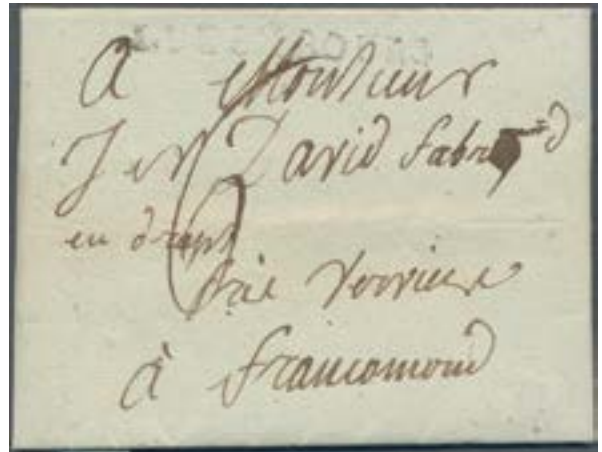 A Monsieur
J David fabr
en draps
Près Verviers
à francomond